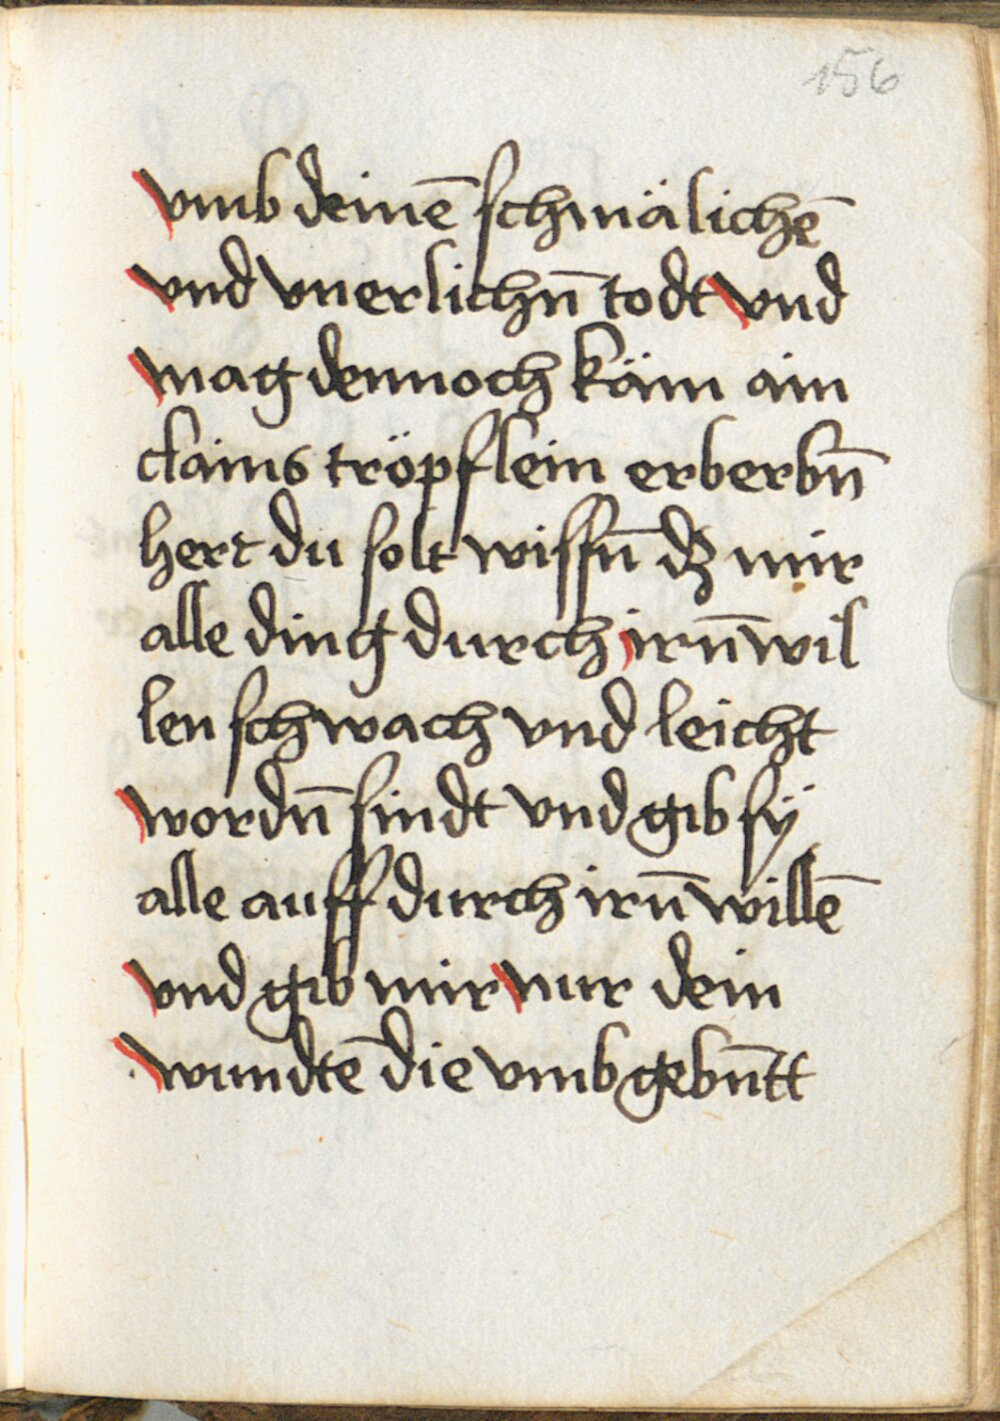 156
vmb deinē schmälichē
vnd vnerlichn̄ todt vnd
mag dennoch käm ain
clains tröpflein erberbn̄
hert du solt wissn̄ dz mir
alle ding durch irn̄ wil
len schwach vnd leicht
wordn̄ sindt vnd gib sÿ
alle auff durch irn̄ willē
vnd gib mir nur dein
wundtē die vmb gebn̄tt